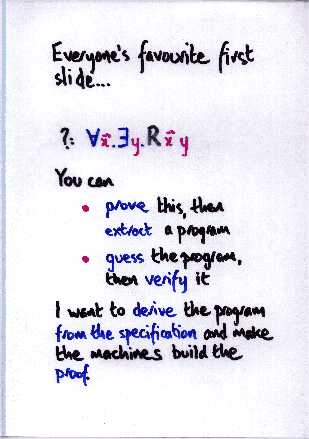 Everyone's favourite first
slide...
?: ∀x⃗.∃y.Rx⃗y
You can
• prove this, then
extract a program
• guess the program,
then verify it
I want to derive the program
from the specification and make
the machines build the
proof